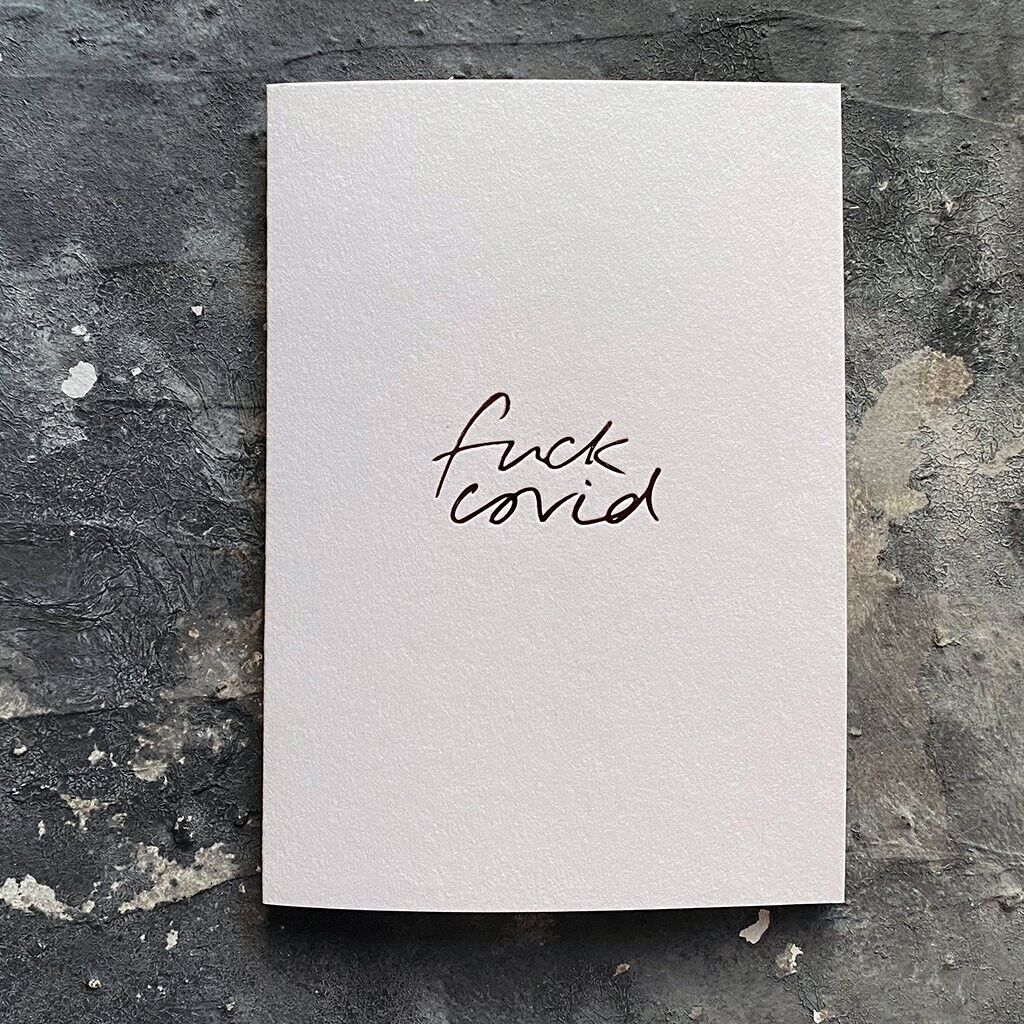 fuck
covid